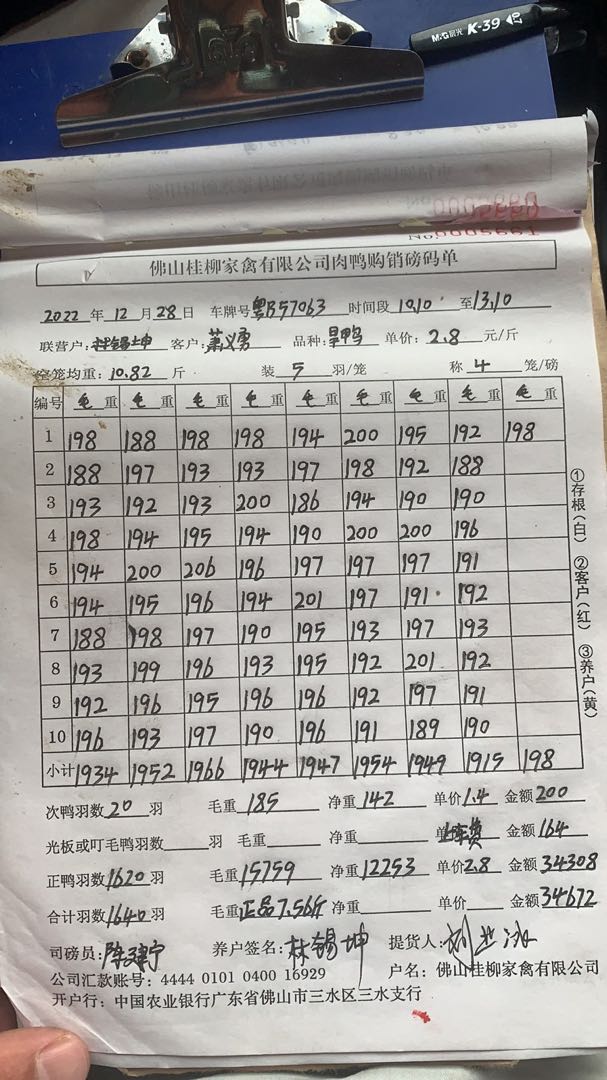 M&G 晨光 K-39
No. 0005661
佛山桂柳家禽有限公司肉鸭购销磅码单
2022 年 12 月 28 日 车牌号 粤B57063 时间段 10.10 至 13.10
联营户: 林锡坤 客户: 萧义勇 品种: 旱鸭 单价: 2.8 元/斤
空笼均重: 10.82 斤 装 5 羽/笼 称 4 笼/磅
编号 毛重 毛重 毛重 毛重 毛重 毛重 毛重 毛重 毛重
1 198 188 198 198 194 200 195 192 198
2 188 197 193 193 197 198 192 188
3 193 192 193 200 186 194 190 190
4 198 194 195 194 190 200 200 196
5 194 200 206 196 197 197 197 191
6 194 195 196 194 201 197 191 192
7 188 198 197 190 195 193 197 193
8 193 199 196 193 195 192 201 192
9 192 196 195 196 196 192 197 191
10 196 193 197 190 196 191 189 190
小计 1934 1952 1966 1944 1947 1954 1949 1915 198
次鸭羽数 20 羽 毛重 185 净重 142 单价 1.4 金额 200
光板或叮毛鸭羽数 羽 毛重 净重 上车费 金额 164
正鸭羽数 1620 羽 毛重 15759 净重 12253 单价 2.8 金额 34308
合计羽数 1640 羽 毛重 正品7.56斤 净重 单价 金额 34672
司磅员: 陈建宁 养户签名: 林锡坤 提货人:
公司汇款账号: 4444 0101 0400 16929 户名: 佛山桂柳家禽有限公司
开户行: 中国农业银行广东省佛山市三水区三水支行
①存根(白) ②客户(红) ③养户(黄)